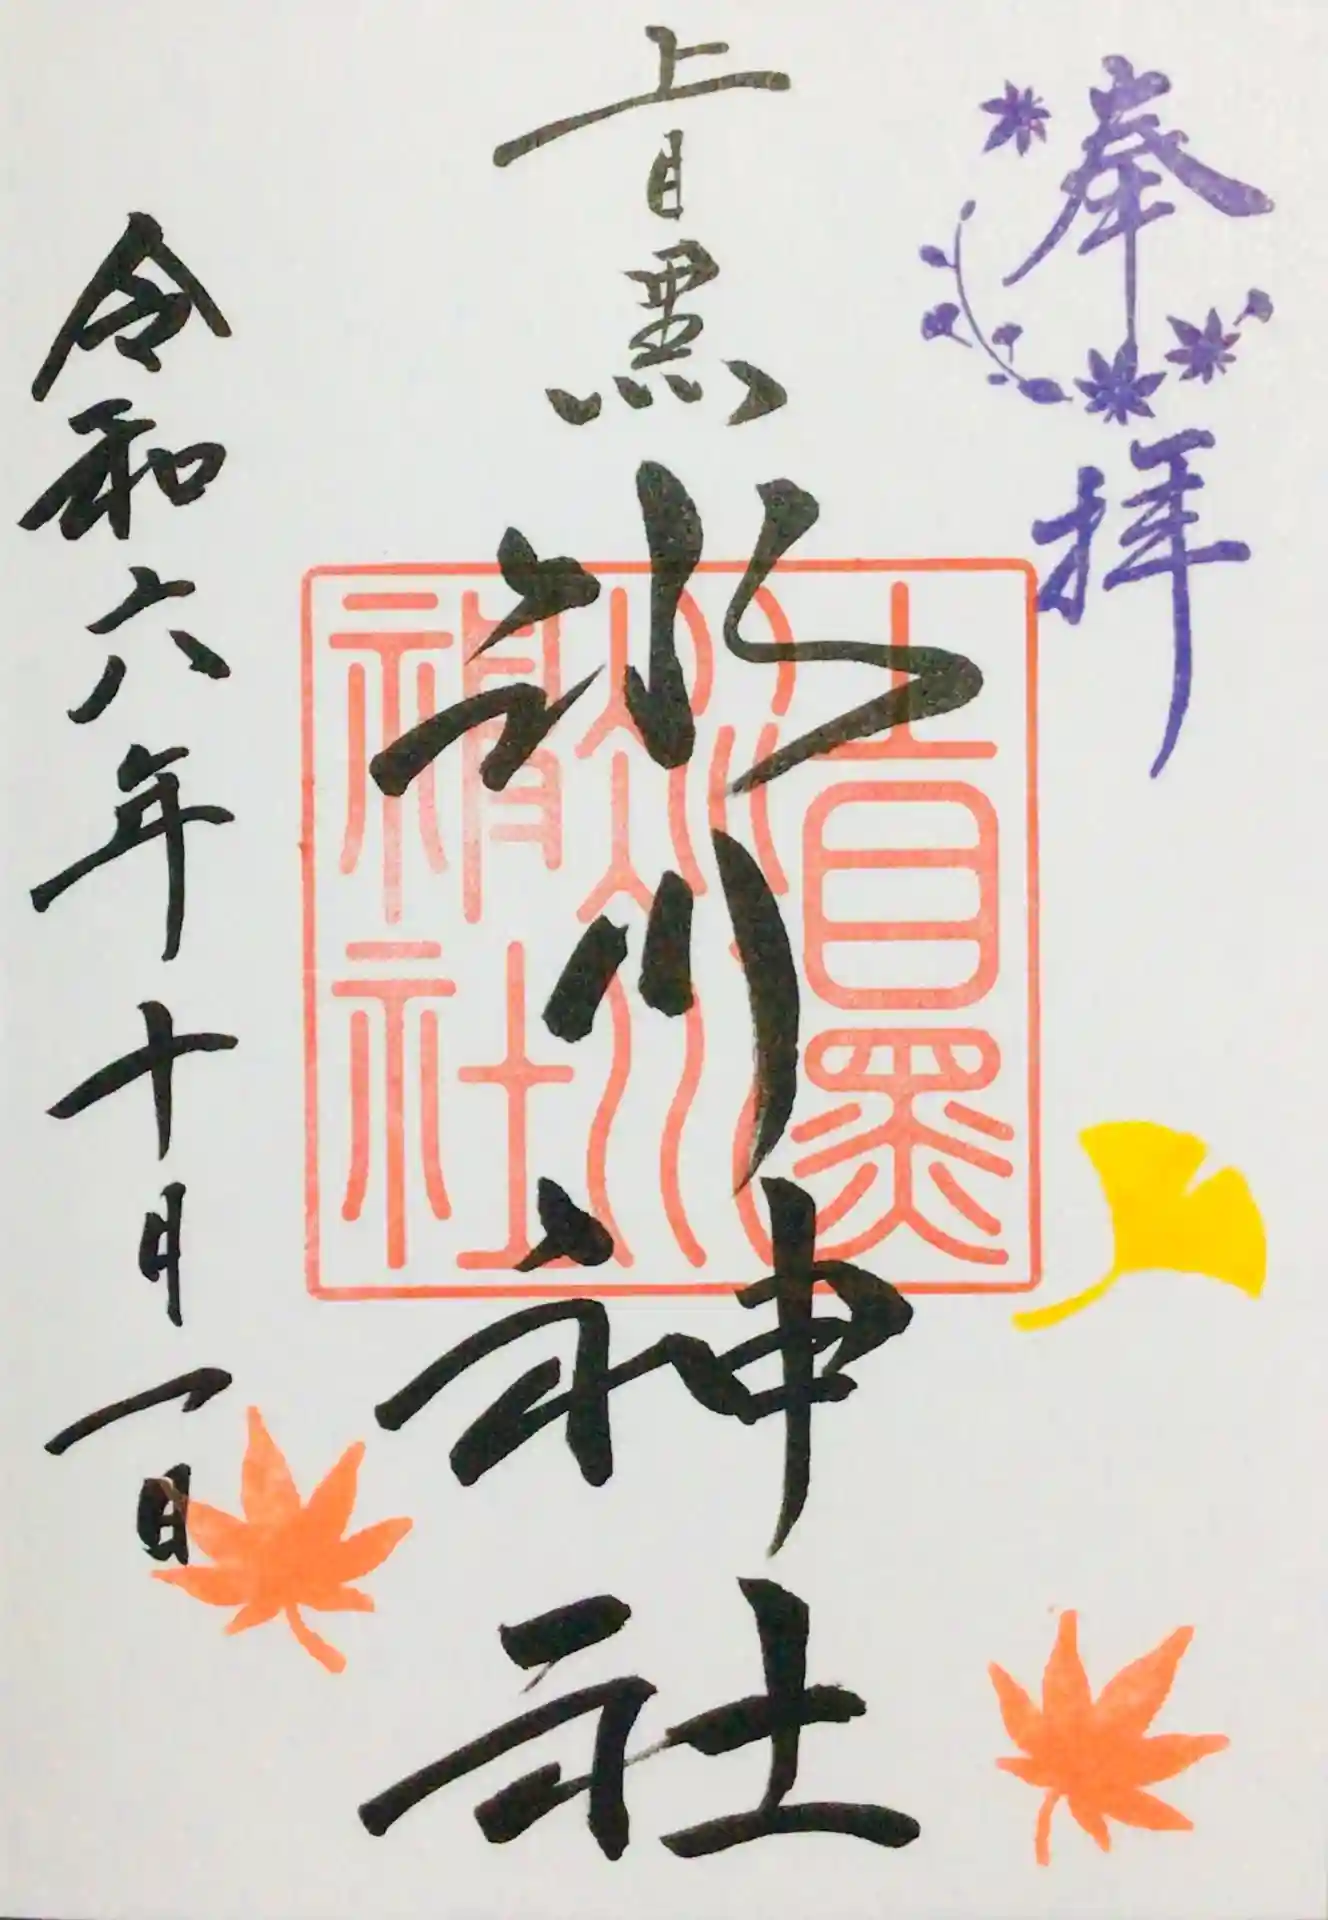 奉拝
上目黒
氷川神社
上目黒
氷川
神社
令和六年十月一日